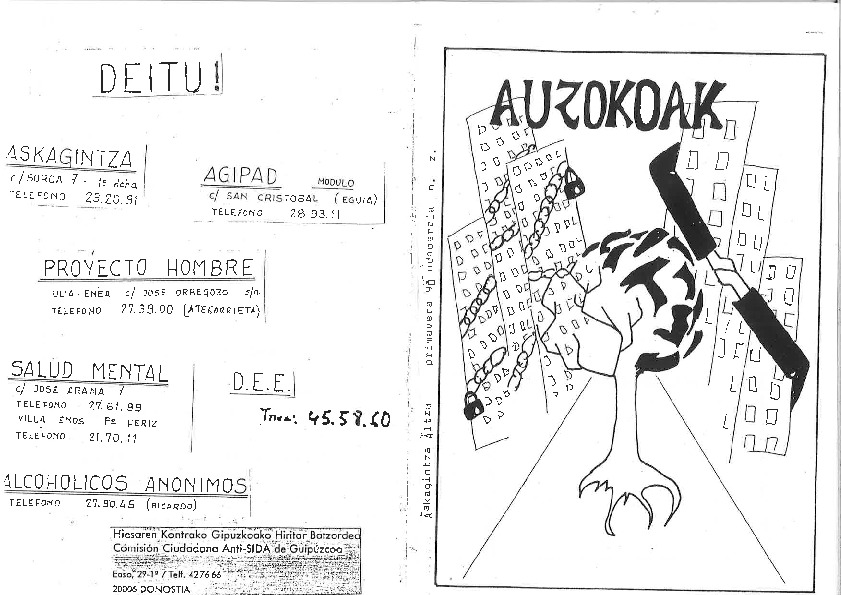 DEITU!
ASKAGINTZA
TELEFONO
AGIPAD MODULO
C/ SAN CRISTOBAL (EGUIA)
TELEFONO 28.93.11
PROYECTO HOMBRE
TELEFONO 27.39.00 (ATEGORRIETA)
SALUD MENTAL
C/ JOSE ARANA 7
TELEFONO 27.61.99
TELEFONO 21.70.11
D.E.E.
Tnoa: 45.58.60
ALCOHOLICOS ANONIMOS
TELEFONO 27.90.45 (RICARDO)
Hiesaren Kontrako Gipuzkoako Hiritar Batzordea
Comisión Ciudadana Anti-SIDA de Guipúzcoa
Easo, 29-1º / Telf. 42 76 66
20006 DONOSTIA
Askagintza Altza primavera 90 udaberria n. 2.
AUZOKOAK